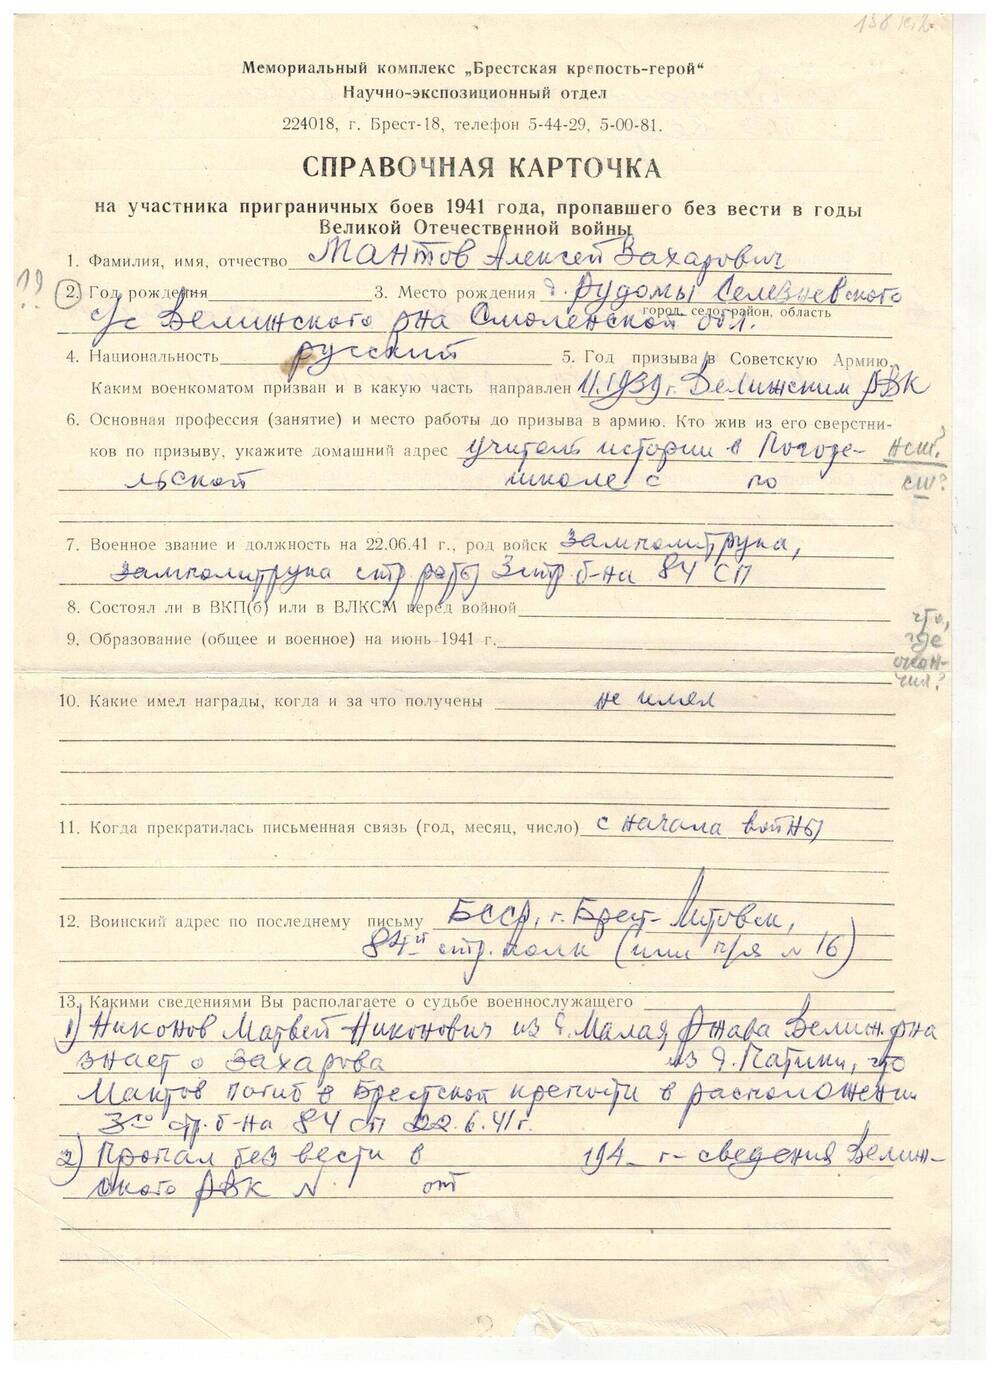 158 к.2.
Мемориальный комплекс „Брестская крепость-герой“
Научно-экспозиционный отдел
224018, г. Брест-18, телефон 5-44-29, 5-00-81.
СПРАВОЧНАЯ КАРТОЧКА
на участника приграничных боев 1941 года, пропавшего без вести в годы
Великой Отечественной войны
1. Фамилия, имя, отчество Мантов Алексей Захарович
2. Год рождения 3. Место рождения д. Рудомы Селезневского
город, село, район, область
с/с Велижского р-на Смоленской обл.
4. Национальность русский 5. Год призыва в Советскую Армию.
Каким военкоматом призван и в какую часть направлен 11.1939 г. Велижским РВК
6. Основная профессия (занятие) и место работы до призыва в армию. Кто жив из его сверстни-
ков по призыву, укажите домашний адрес учитель истории в Погоре-
льской школе с по
сш?
7. Военное звание и должность на 22.06.41 г., род войск замполитрука,
замполитрука стр. роты 3 стр. б-на 84 СП
8. Состоял ли в ВКП(б) или в ВЛКСМ перед войной
9. Образование (общее и военное) на июнь 1941 г.
что,
где
окон-
чил?
10. Какие имел награды, когда и за что получены не имел
11. Когда прекратилась письменная связь (год, месяц, число) с начала войны
12. Воинский адрес по последнему письму БССР, г. Брест-Литовск,
84й стр. полк (или п/я N 16)
13. Какими сведениями Вы располагаете о судьбе военнослужащего
1) Никонов Матвей Никонович из д. Малая Ржава Велиж. р-на
знает о Захарова из д. Патики, что
Мантов погиб в Брестской крепости в расположении
3го стр. б-на 84 СП 22.6.41 г.
2) Пропал без вести в 194_ г - сведения Велиж-
ского РВК N от